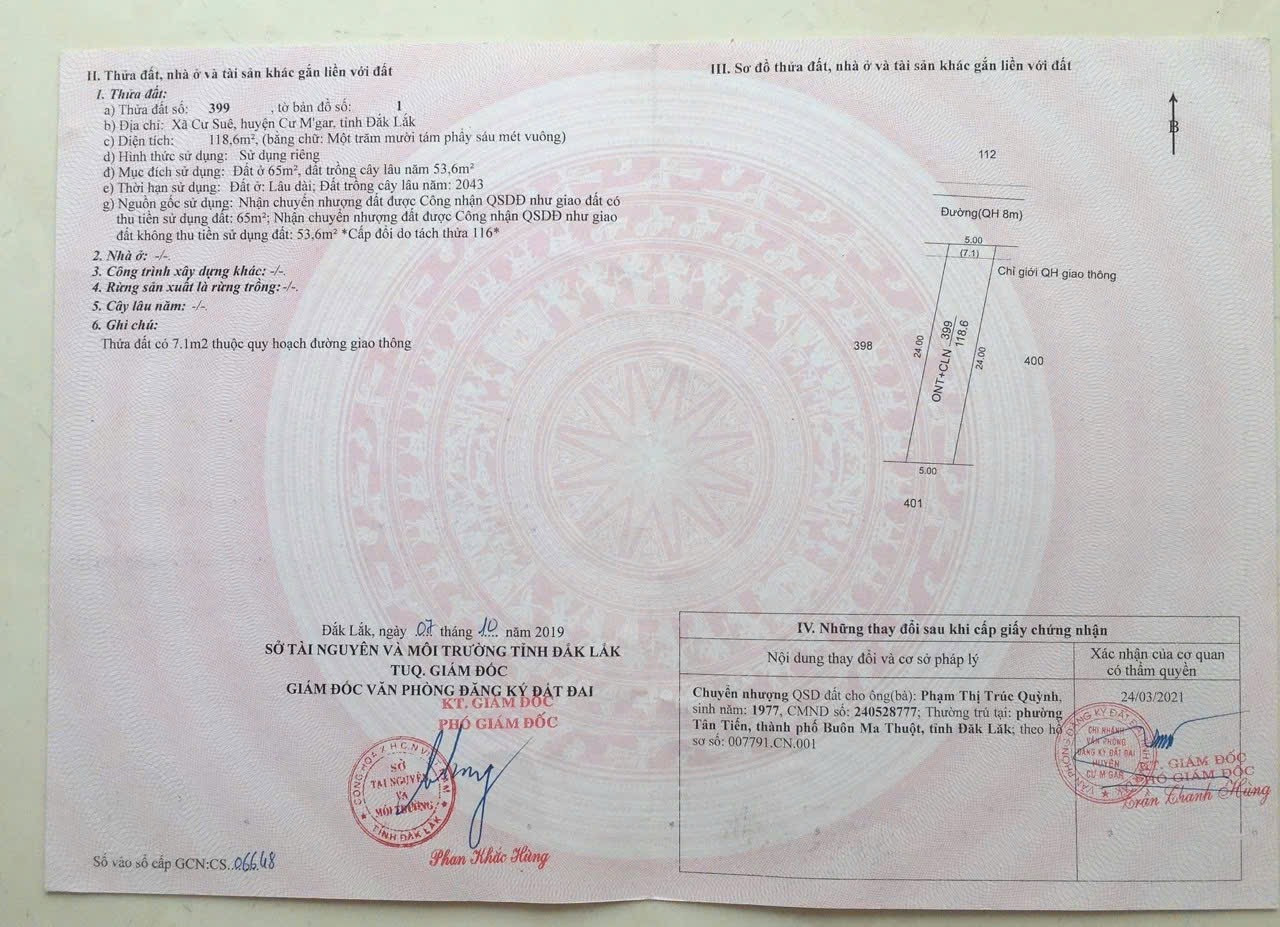 II. Thửa đất, nhà ở và tài sản khác gắn liền với đất
1. Thửa đất:
a) Thửa đất số: 399 , tờ bản đồ số: 1
b) Địa chỉ: Xã Cư Suê, huyện Cư M'gar, tỉnh Đắk Lắk
c) Diện tích: 118,6m², (bằng chữ: Một trăm mười tám phẩy sáu mét vuông)
d) Hình thức sử dụng: Sử dụng riêng
đ) Mục đích sử dụng: Đất ở 65m², đất trồng cây lâu năm 53,6m²
e) Thời hạn sử dụng: Đất ở: Lâu dài; Đất trồng cây lâu năm: 2043
g) Nguồn gốc sử dụng: Nhận chuyển nhượng đất được Công nhận QSDĐ như giao đất có
thu tiền sử dụng đất: 65m²; Nhận chuyển nhượng đất được Công nhận QSDĐ như giao
đất không thu tiền sử dụng đất: 53,6m² *Cấp đổi do tách thửa 116*
2. Nhà ở: -/-.
3. Công trình xây dựng khác: -/-.
4. Rừng sản xuất là rừng trồng: -/-.
5. Cây lâu năm: -/-.
6. Ghi chú:
Thửa đất có 7.1m2 thuộc quy hoạch đường giao thông
Đắk Lắk, ngày 07 tháng 10 năm 2019
SỞ TÀI NGUYÊN VÀ MÔI TRƯỜNG TỈNH ĐẮK LẮK
TUQ. GIÁM ĐỐC
GIÁM ĐỐC VĂN PHÒNG ĐĂNG KÝ ĐẤT ĐAI
KT. GIÁM ĐỐC
PHÓ GIÁM ĐỐC
SỞ
TÀI NGUYÊN
VÀ
MÔI TRƯỜNG
TỈNH ĐẮK LẮK
Phan Khắc Hùng
Số vào sổ cấp GCN:CS..06648
III. Sơ đồ thửa đất, nhà ở và tài sản khác gắn liền với đất
B
112
Đường(QH 8m)
5.00
(7.1)
Chỉ giới QH giao thông
398
24.00
ONT+CLN 399
118.6
24.00
400
5.00
401
IV. Những thay đổi sau khi cấp giấy chứng nhận
Nội dung thay đổi và cơ sở pháp lý
Xác nhận của cơ quan
có thẩm quyền
Chuyển nhượng QSD đất cho ông(bà): Phạm Thị Trúc Quỳnh,
sinh năm: 1977, CMND số: 240528777; Thường trú tại: phường
Tân Tiến, thành phố Buôn Ma Thuột, tỉnh Đăk Lăk; theo hồ
sơ số: 007791.CN.001
24/03/2021
CHI NHÁNH
VĂN PHÒNG
ĐĂNG KÝ ĐẤT ĐAI
HUYỆN
CƯ M'GAR
KT. GIÁM ĐỐC
PHÓ GIÁM ĐỐC
Trần Thanh Hùng